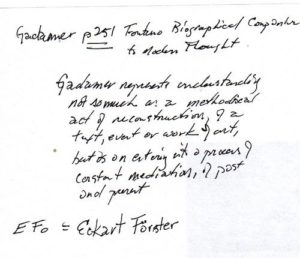 Gadamer p251 Fontana Biographical Companion
to Modern Thought.
Gadamer represents understanding
not so much as a methodical
act of reconstruction, of a
text, event or work of art,
but as an entering into a process of
constant mediation, of past
and present
EFo = Eckart Förster